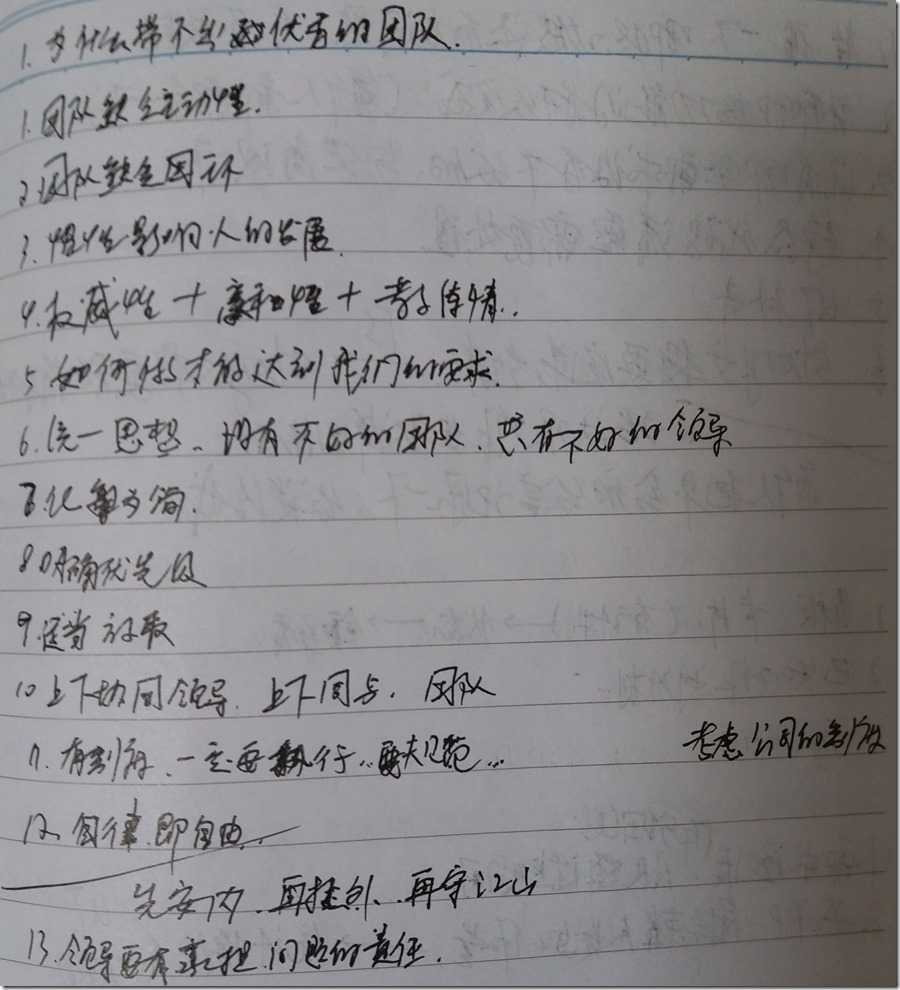 1. 为什么带不出优秀的团队.
1. 团队缺乏主动性.
2. 团队缺乏
3. 惰性影响人的发展.
4. 权威性 + 亲和性 + 陈情..
5 如何做才能达到我们的要求.
6. 统一思想、没有不好的团队, 只有不好的领导
7. 化繁为简.
8 明确优先级
9. 适当放权
10 上下协同领导. 上下同步. 团队
11. 有制度、一定要执行.. 要规范... 考虑公司的制度
12. 自律即自由.
先安内、再攘外、再守江山
13. 领导要有承担问题的责任.